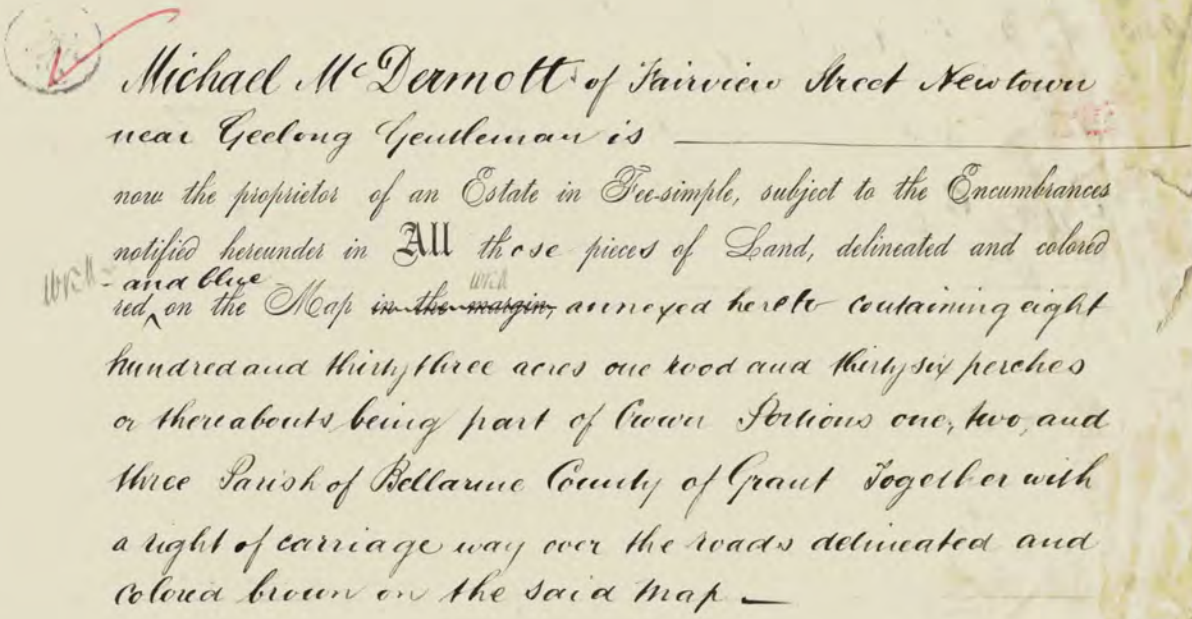 Michael McDermott of Fairview Street Newtown
near Geelong Gentleman is
now the proprietor of an Estate in Fee-simple, subject to the Encumbrances
notified hereunder in All those pieces of Land, delineated and colored
and blue
red on the Map in the margin, annexed hereto containing eight
hundred and thirty three acres one rood and thirty six perches
or thereabouts being part of Crown Portions one, two, and
three Parish of Bellarine County of Grant Together with
a right of carriage way over the roads delineated and
colored brown on the said Map